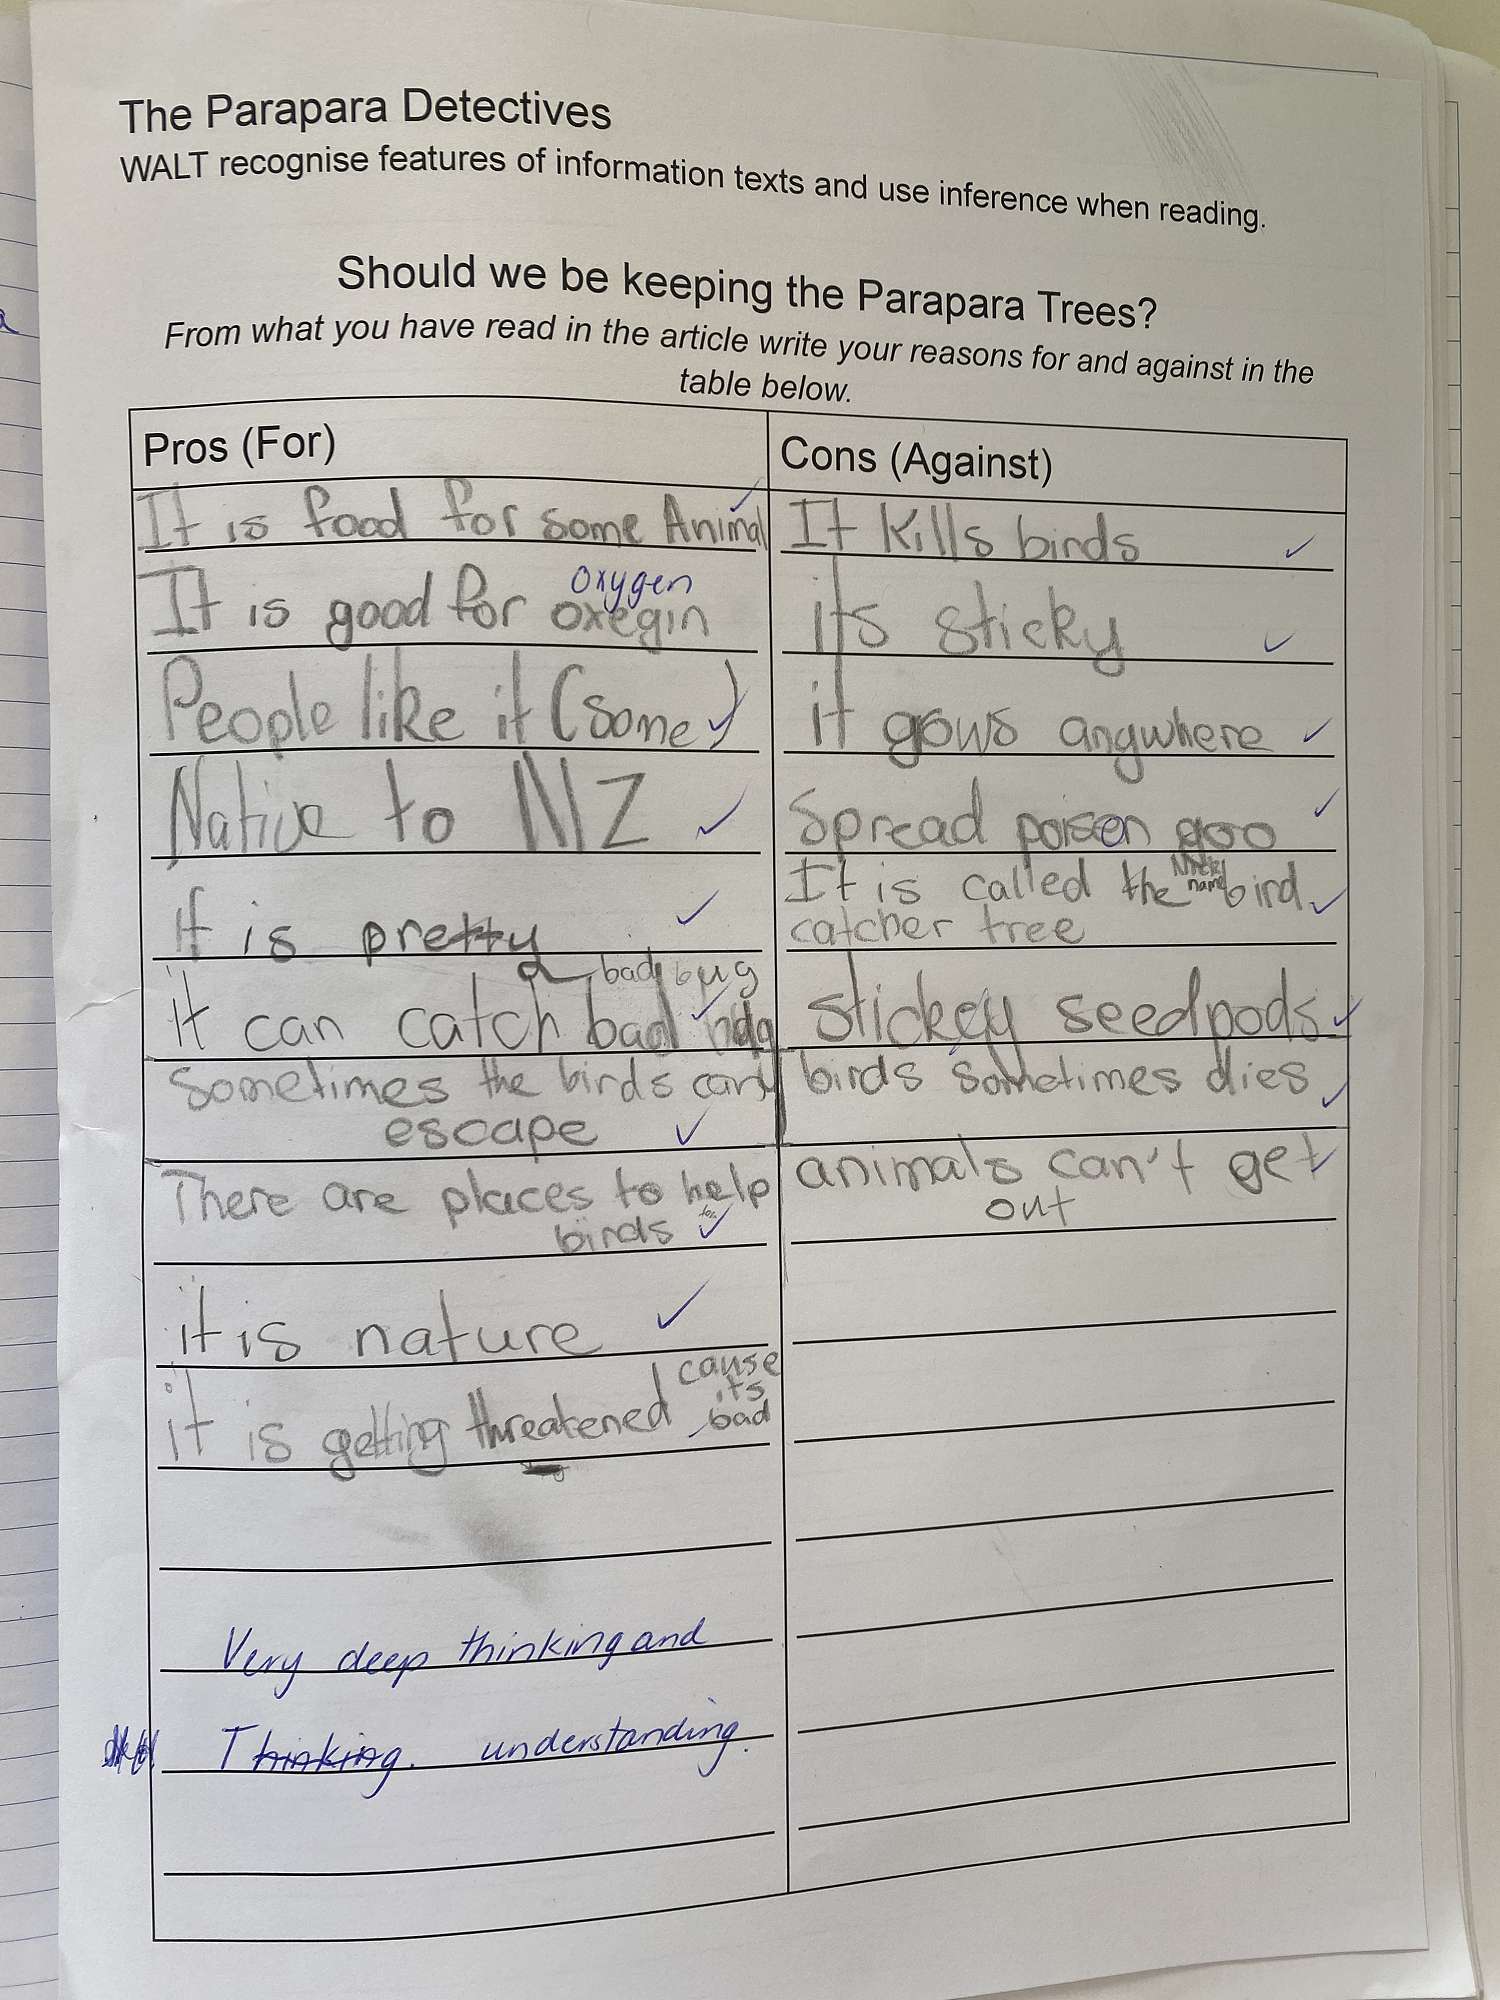 The Parapara Detectives
WALT recognise features of information texts and use inference when reading.
Should we be keeping the Parapara Trees?
From what you have read in the article write your reasons for and against in the
table below.
Pros (For)
It is food for some Animal
oxygen
It is good for oxegin
People like it (some)
Native to NZ
It is pretty
bad bug
it can catch bad
Sometimes the birds can
escape
There are places to help
birds
it is nature
it is getting threatened cause
its
bad
Very deep thinking and
Thinking. understanding.
Cons (Against)
It kills birds
its sticky
it grows anywhere
Spread poisen goo
It is called the Nick name bird
catcher tree
stickey seedpods
birds sometimes dies
animals can't get
out